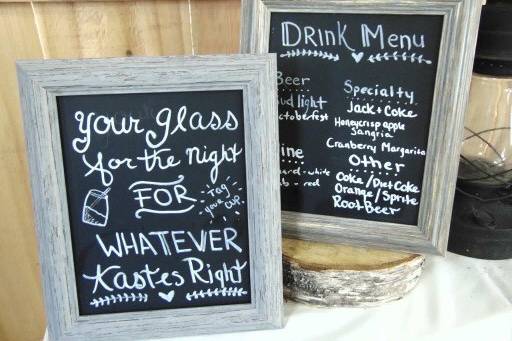 your glass
for the night
FOR
Tag
your
cup.
WHATEVER
tastes Right
Drink Menu
Beer
Bud light
octoberfest
Specialty
Jack + Coke
Honeycrisp apple
Sangria
Cranberry Margarita
Other
Coke / Diet Coke
Orange / Sprite
Root Beer
- white
- red